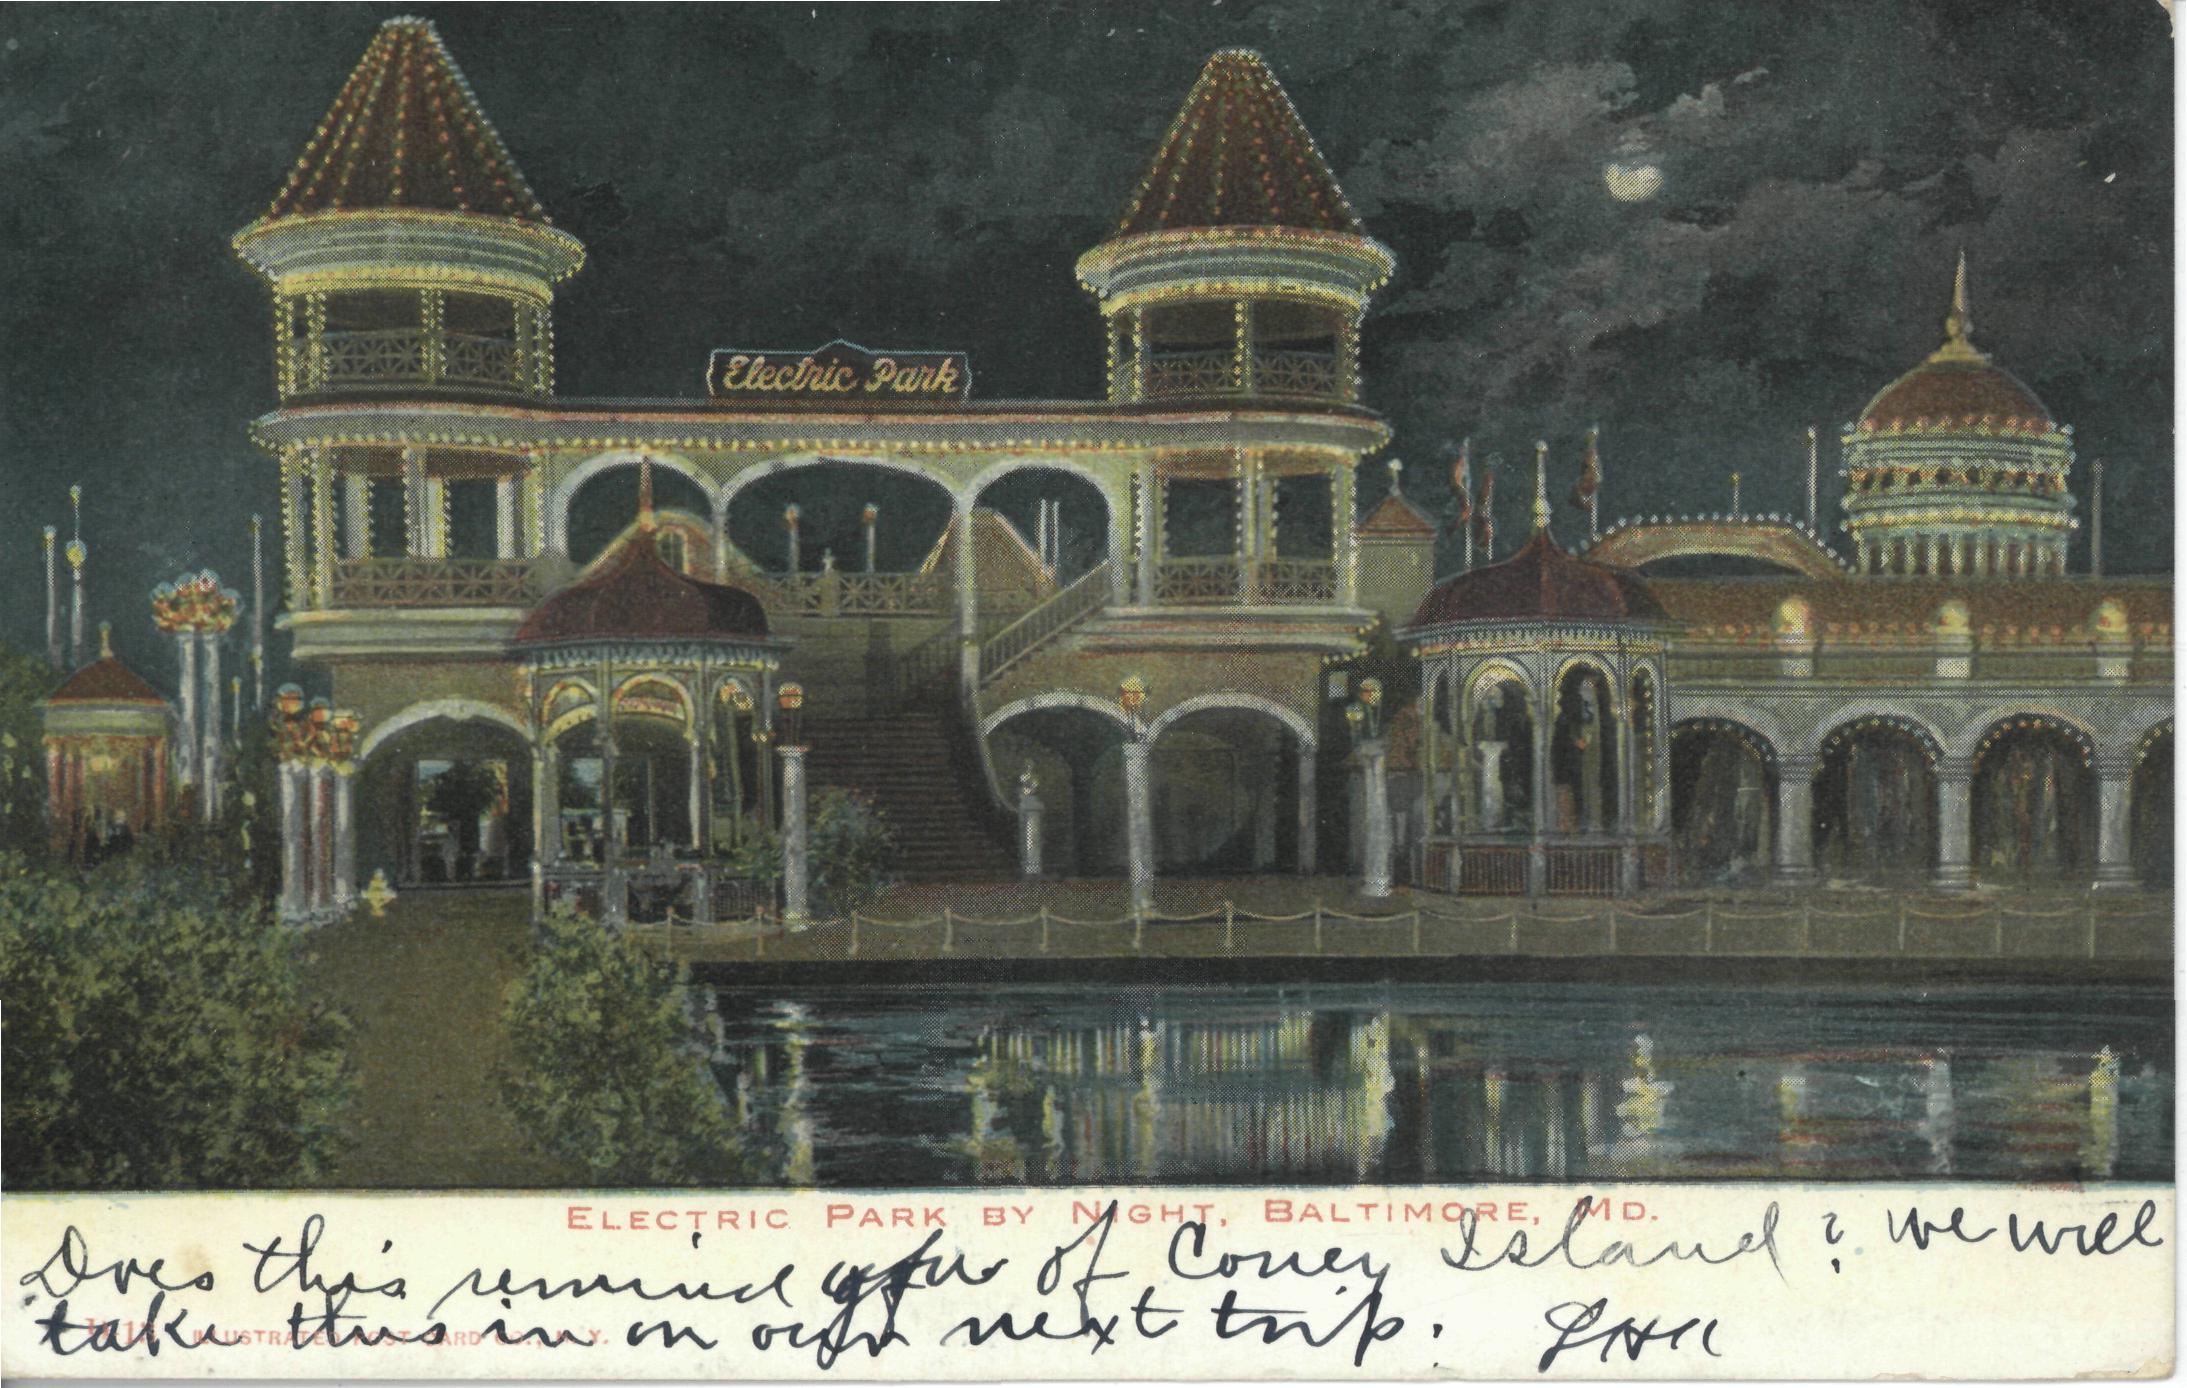 Electric Park
ELECTRIC PARK BY NIGHT, BALTIMORE, MD.
Does this remind you of Coney Island? We will
take this in on our next trip.
ILLUSTRATED POST CARD CO., N.Y.